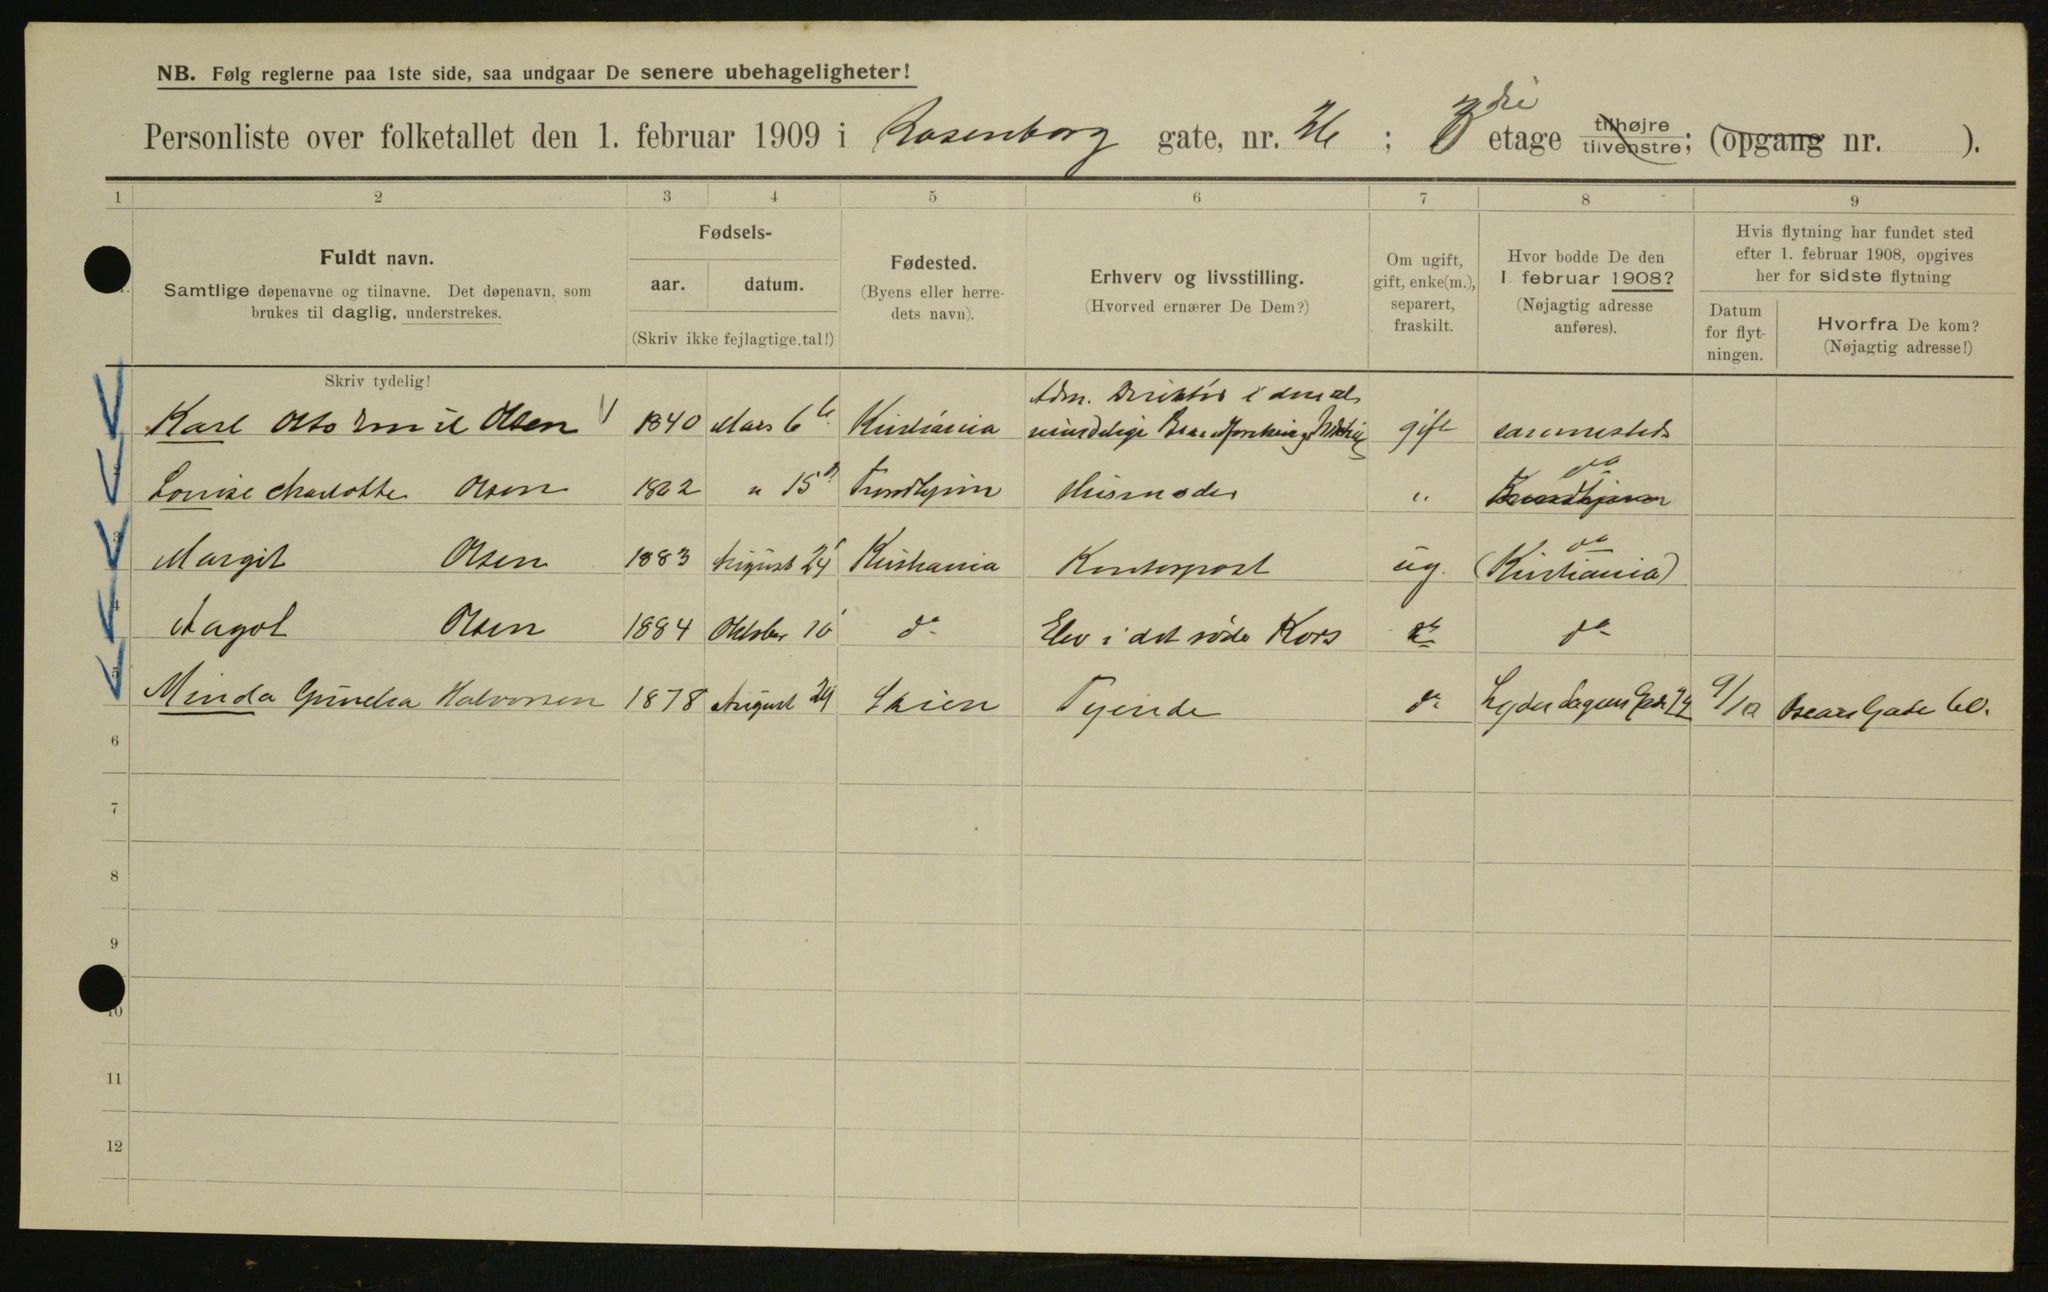 NB. Følg reglerne paa 1ste side, saa undgaar De senere ubehageligheter!
Personliste over folketallet den 1. februar 1909 i Rosenborg gate, nr. ; 3die etage tilhøjre tilvenstre; (opgang nr. ).
1 2 3 4 5 6 7 8 9
Fuldt navn.
Samtlige døpenavne og tilnavne. Det døpenavn, som
brukes til daglig, understrekes.
Skriv tydelig!
Fødsels-
aar. datum.
(Skriv ikke fejlagtige tal!)
Fødested.
(Byens eller herre-
dets navn).
Erhverv og livsstilling.
(Hvorved ernærer De Dem?)
Om ugift,
gift, enke(m.),
separert,
fraskilt.
Hvor bodde De den
1. februar 1908?
(Nøjagtig adresse
anføres).
Hvis flytning har fundet sted
efter 1. februar 1908, opgives
her for sidste flytning
Datum
for flyt-
ningen.
Hvorfra De kom?
(Nøjagtig adresse!)
Karl Otto Emil Olsen 1840 Mars 6 Kristiania Adm. Direktør i den al mindelige gift sammesteds
2 Louise Charlotte Olsen " 15 Trondhjem Husmoder " do Trondhjem
3 Margit Olsen 1883 August 24 Kristiania Kontorpost ug. do (Kristiania)
4 Aagot Olsen 1884 Oktober do Elev i det røde Kors do do
5 Minda Halvorsen 1878 August 29 Skien Tyende do 9/10 Oscars Gade 60.
6
7
8
9
10
11
12